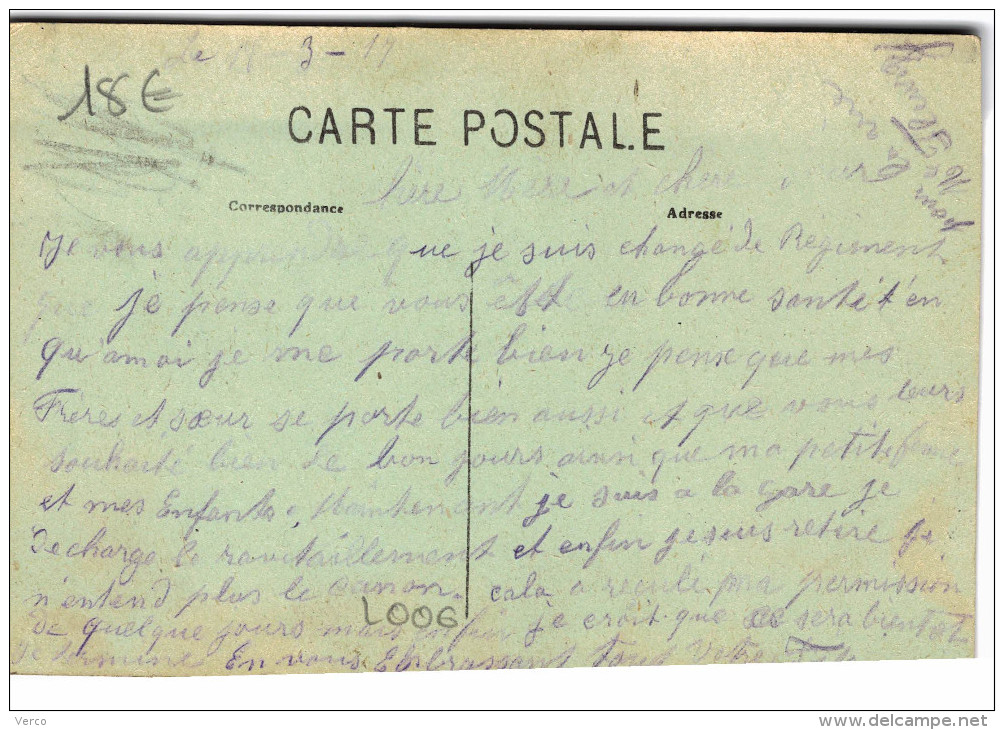 Le 3-17
18€
CARTE POSTALE
Père Mère et chère
Correspondance
Adresse
pour la vie
Je vous apprendre que je suis changé de Régiment
que je pense que vous en bonne santét én
qu'amoi je me porte bien je pense que mes
Frères et sœur se porte bien aussi et que vous leurs
souhaité bien de bon jours ainsi que ma petite femme
et mes Enfants. Maintenent je suis a la gare je
decharge le ravitaillement et enfin je suis retiré je
n'entend plus le canon. cala a reculé ma permission
de quelque jours mais enfin je croit que ce sera bientot
terminé En vous Embrassant tous Votre Fils
L006
Verco
www.delcampe.net